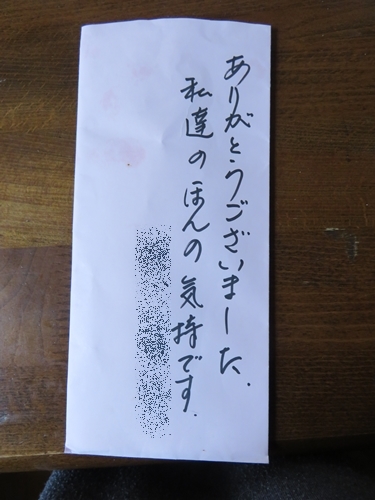 ありがとうございました.
私達のほんの気持です.